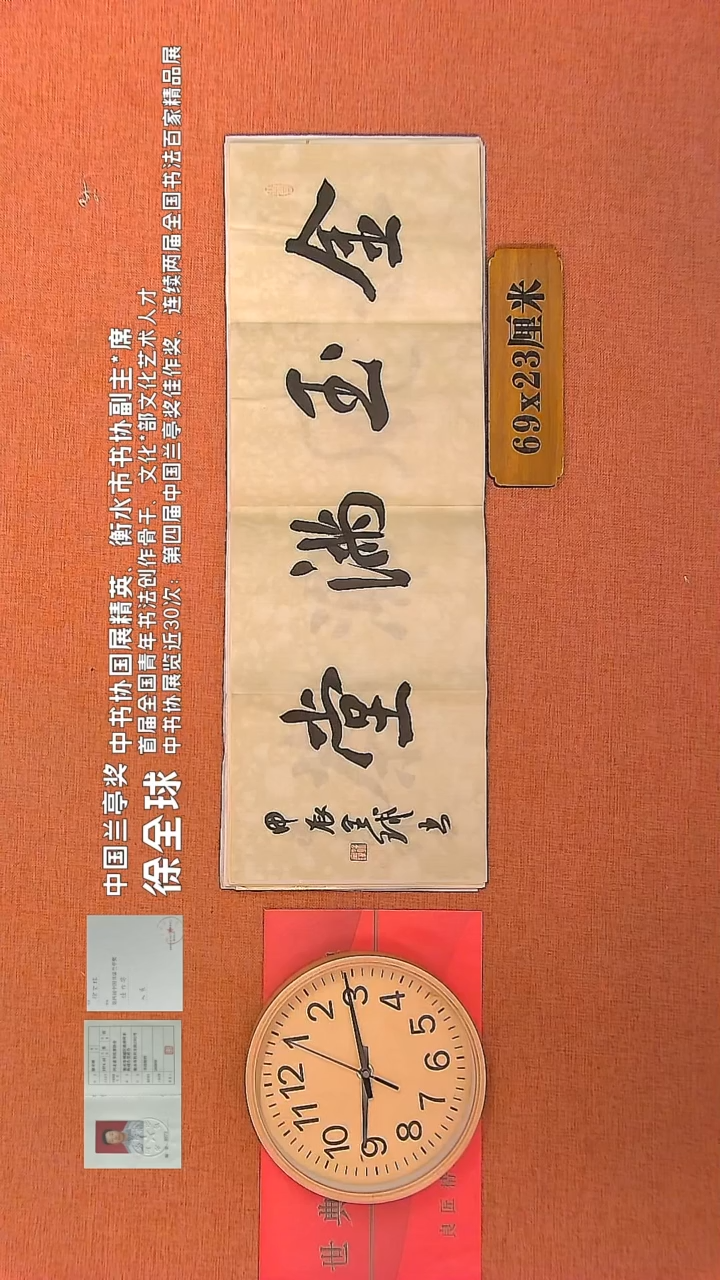 中国兰亭奖 中书协国展精英、衡水市书协副主*席
徐全球
首届全国青年书法创作骨干、文化*部文化艺术人才
中书协展览近30次：第四届中国兰亭奖佳作奖、连续两届全国书法百家精品展
金玉满堂
甲辰全球书
69x23厘米
12
1
2
3
4
5
6
7
8
9
10
11
世典
良匠